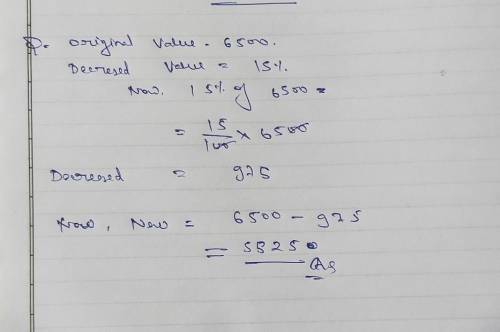 Q. Original Value = 6500.
Decresed Value = 15%.
Now, 15% of 6500 =
= 15/100 × 6500
Decresed = 975
Now, New = 6500 - 975
= 55250
Ans